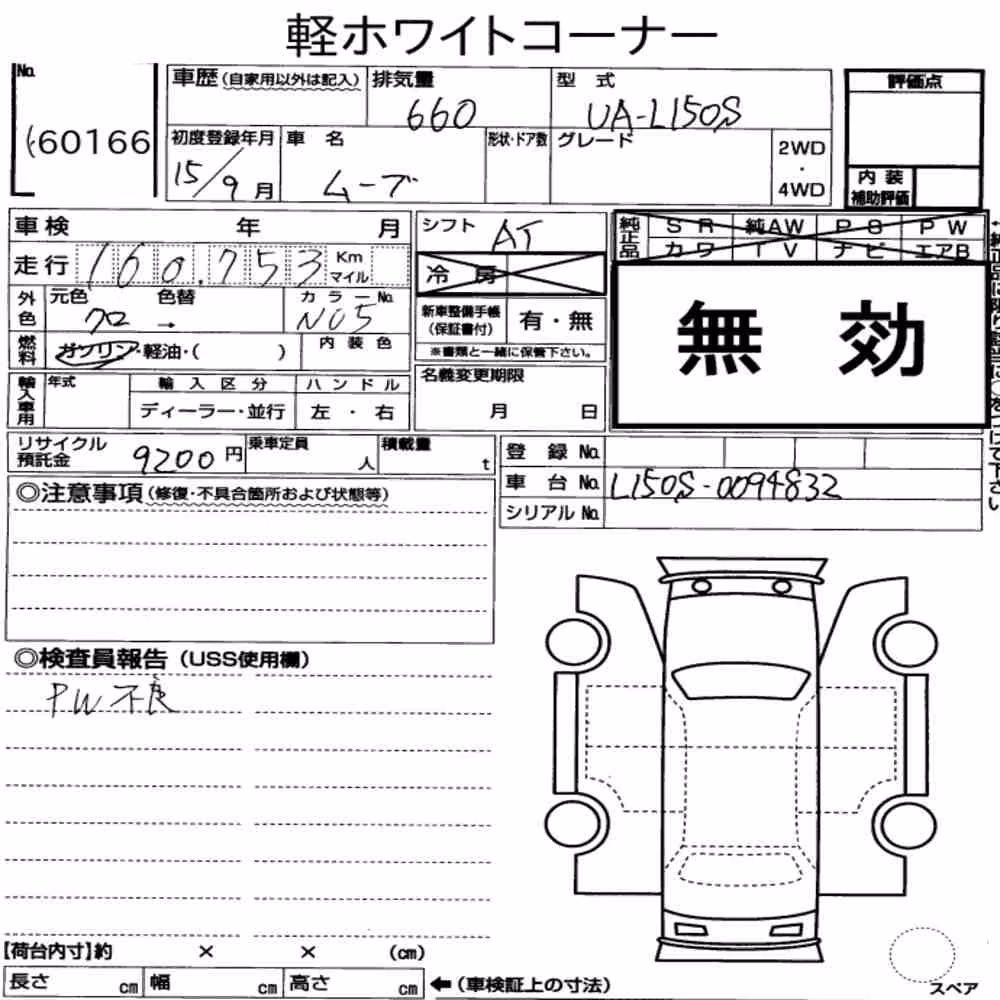 軽ホワイトコーナー
No.
60166
車歴(自家用以外は記入)
排気量
660
型 式
UA-L150S
評価点
初度登録年月
15/9月
車 名
ムーブ
形状・ドア数
グレード
2WD
・
4WD
内 装
補助評価
車検 年 月
走行 160,753 Km
マイル
シフト
AT
冷 房
純正品
S R 純AW P S P W
カワ T V ナビ エアB
無 効
外色
元色 色替
クロ →
カラーNo.
N05
新車整備手帳
(保証書付)
有・無
※書類と一緒に保管下さい。
燃料
ガソリン・軽油・( )
内 装 色
輸入車用
年式
輸 入 区 分
ディーラー・並行
ハ ン ド ル
左 ・ 右
名義変更期限
月 日
リサイクル
預託金
9200円
乗車定員
人
積載量
t
登 録 No.
車 台 No.
L150S-0094832
シリアル No.
◎注意事項(修復・不具合箇所および状態等)
◎検査員報告(USS使用欄)
PW不良
【荷台内寸】約 × × (cm)
長さ cm 幅 cm 高さ cm ←(車検証上の寸法)
スペア